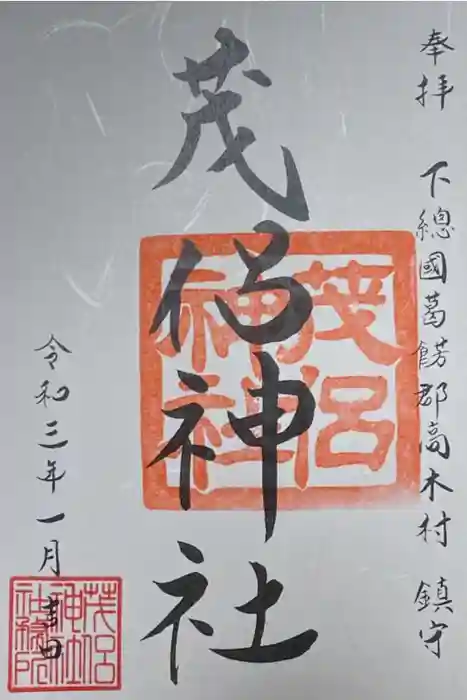 奉拝 下總國葛餝郡高木村 鎮守
茂侶神社
茂呂
神社
令和三年一月
茂呂
神社